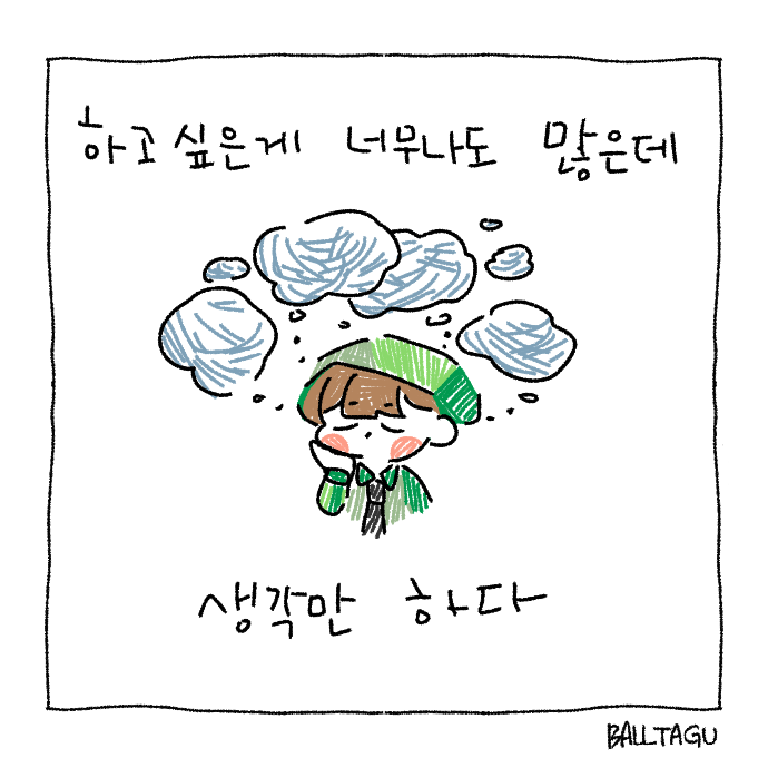 하고 싶은게 너무나도 많은데
생각만 하다
BALLTAGU